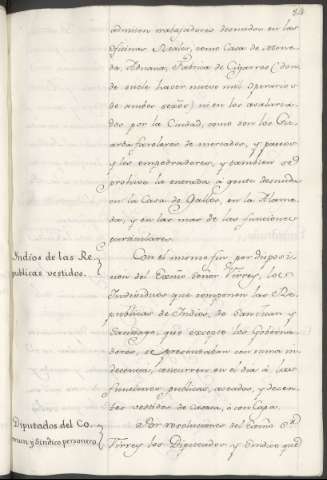 admiten trabajadores desnudos en las
Oficinas Reales, como Casa de Mone-
da, Aduana, Fabrica de Cigarros (don-
de suele haver nueve mil operarios
de ambos sexos) ni en los asalaria-
dos por la Ciudad, como son los Gu-
ardafaroleros de mercados, y paseos
y los empedradores, y tambien se
prohive la entrada á gente desnuda
en la Casa de Gallos, en la Alame-
da, y en las mas de las funciones
particulares.
Indios de las Re-
publicas vestidos.
Con el mismo fin, por disposi-
cion del Exmô Señor Virrey, los
Individuos que componen las Re-
publicas de Indios, de San Juan y
Santiago, que excepto los Governa-
dores, se presentaban con suma in-
decencia, concurren en el dia á las
funciones publicas, aseados, y decen-
tes vestidos de casaca, o con Capa.
Diputados del Co-
mun, y Sindico personero.
Por resoluciones del Exmô Sôr
Virrey los Diputados, y Sindico que